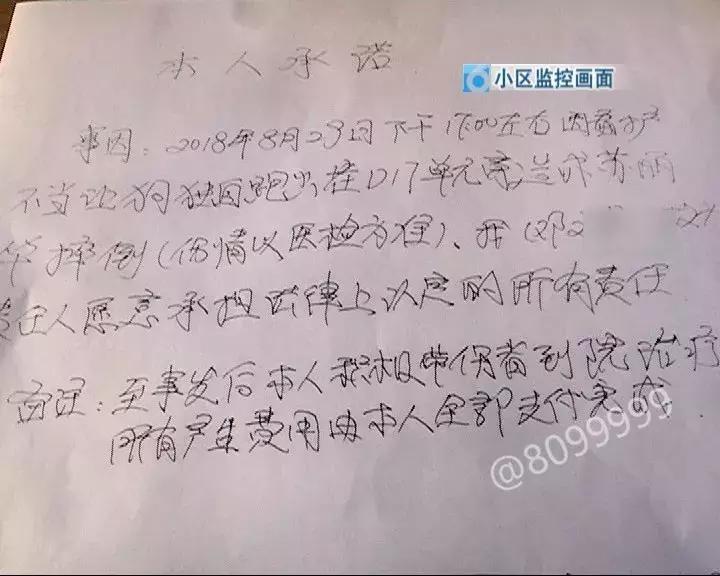 本人承诺
小区监控画面
事因：2018年8月29日下午17:00左右因看护
不当让狗独自跑出在D17单元 苏丽
华摔倒（伤情以医检为准）、我（邓
责任人愿意承担法律上认定的所有责任
至事发后本人积极带伤者到院治疗
所有产生费用由本人全部支付
@8099999